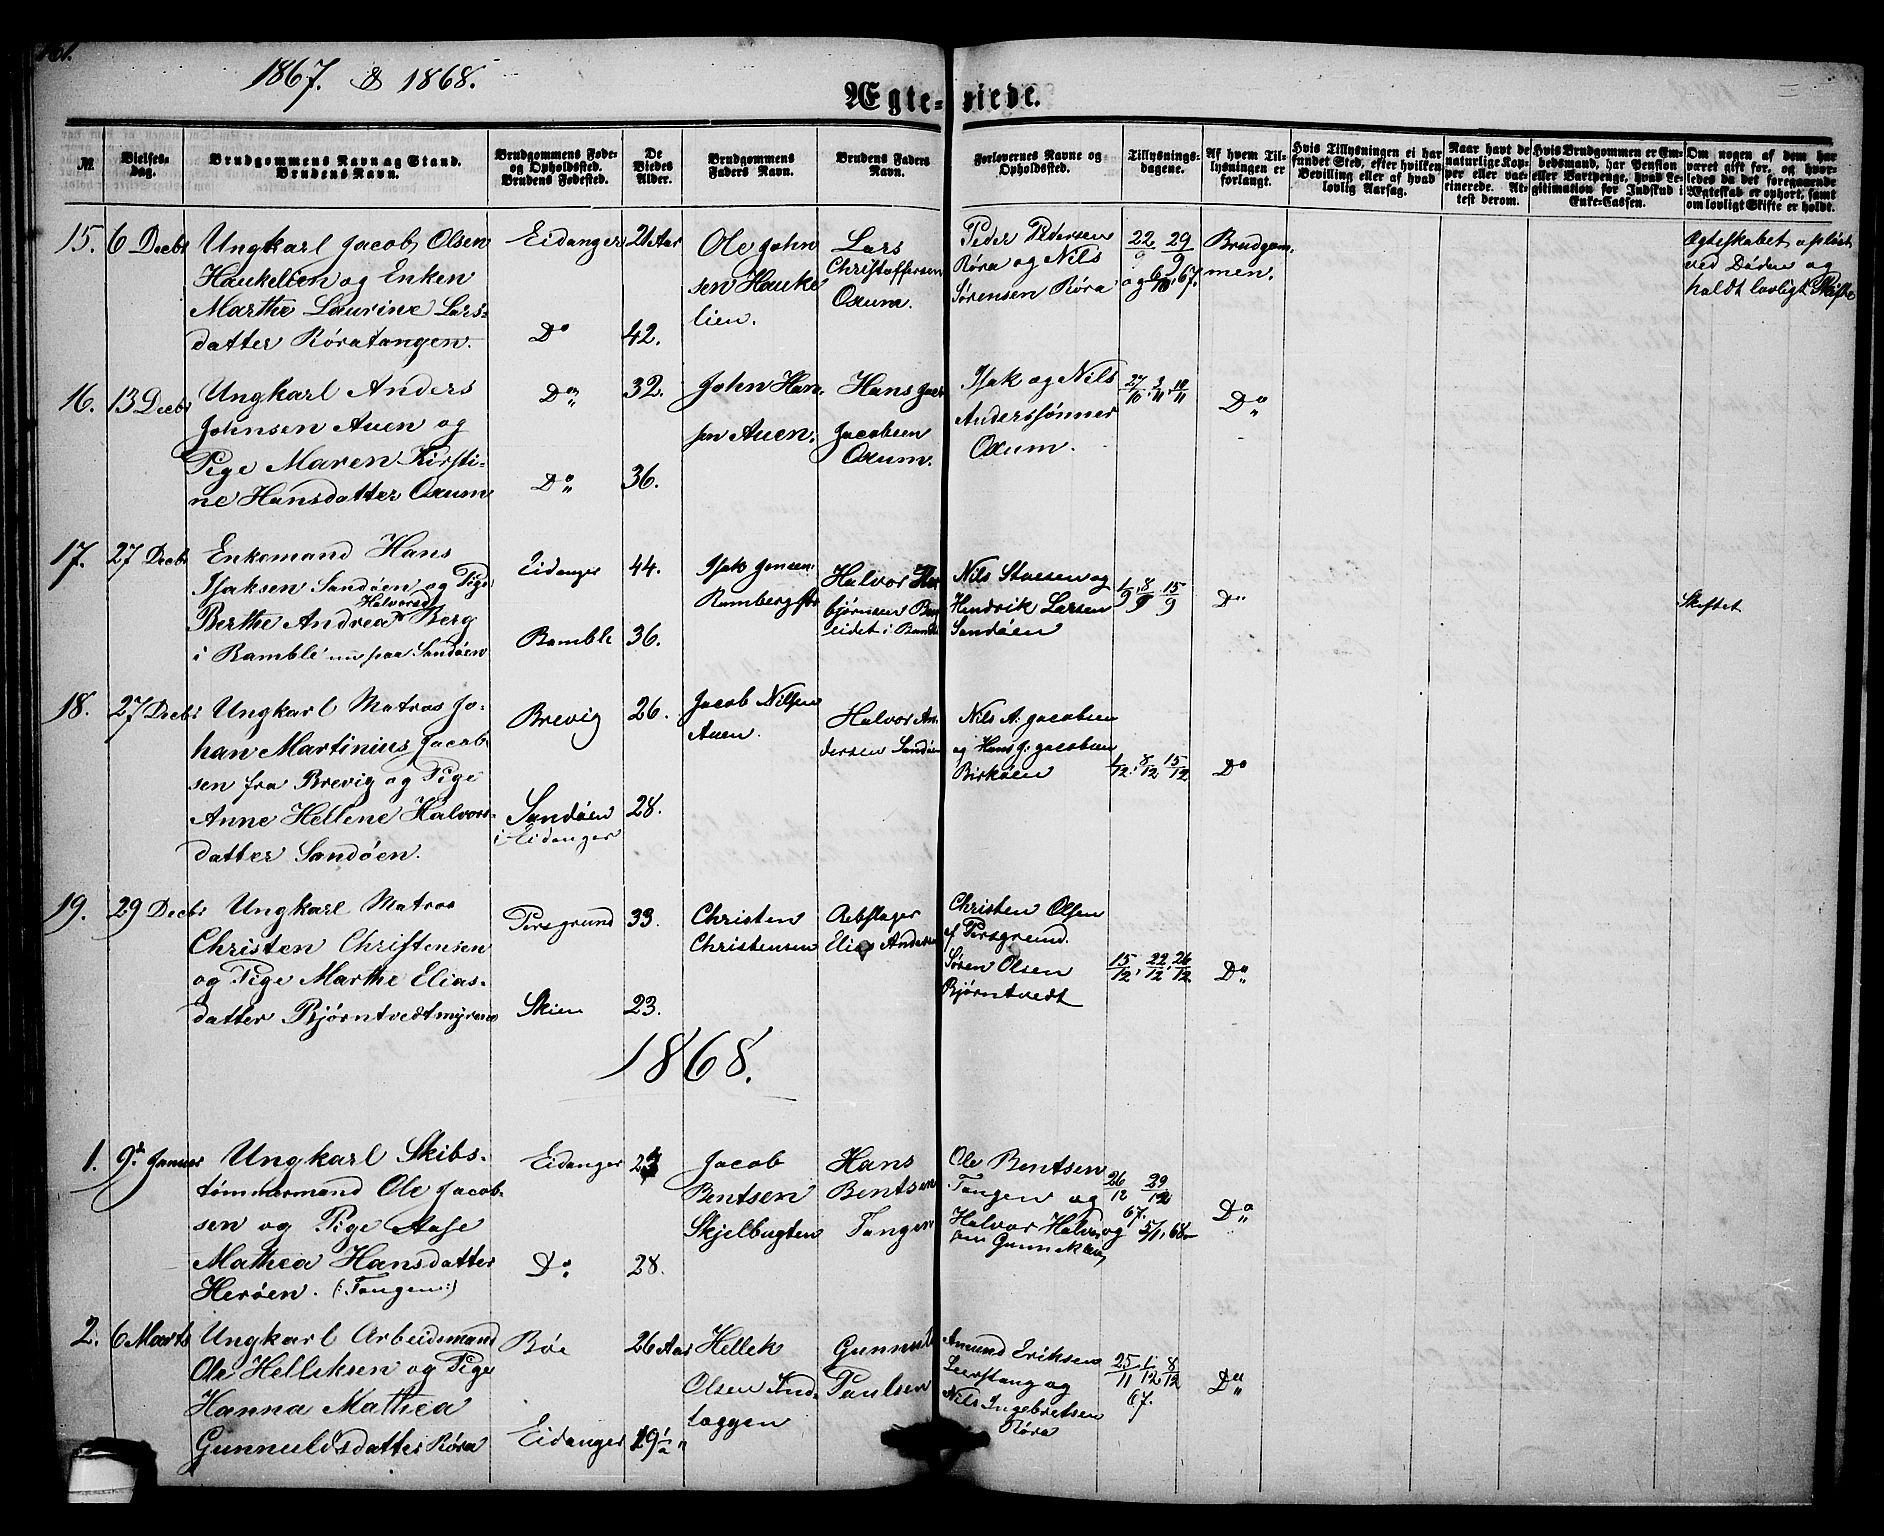 161.
1867. & 1868.
Ægte- viede.
№
Vielses-
dag.
Brudgommens Navn og Stand.
Brudens Navn.
Brudgommens Føde-
og Opholdssted.
Brudens Fødested.
De
Viedes
Alder.
Brudgommens
Faders Navn.
Brudens Faders
Navn.
Forlovernes Navne og
Opholdssted.
Tillysnings-
dagene.
Af hvem Til-
lysningen er
forlangt.
Hvis Tillysningen ei har
fundet Sted, efter hvilken
Bevilling eller af hvad
lovlig Aarsag.
Naar havt de
naturlige Kop-
per eller vac-
cinerede. At-
test derom.
Hvis Brudgommen er Em-
bedsmand, har Pension
eller Vartpenge, hvad Le-
gitimation for Indskud i
Enke-Cassen.
Om nogen af dem har
været gift før, og hvor-
ledes da det foregaaende
Ægteskab er ophørt, samt
om lovligt Skifte er holdt.
15. 6 Decbr
Ungkarl Jacob Olsen
Haukelien og Enken
Marthe Laurine Lars-
datter Røratangen.
Eidanger
Do
21 Aar
42.
Ole John
sen Hauke
lien.
Lars
Christoffersen
Oxum.
Peder Pedersen
Røra og Nils
Sørensen Røra
22/9 29/9
og 6/10 67.
Brudgom-
men.
Ægteskabet opløst
ved Døden og
holdt lovligt Skifte
16. 13 Decbr
Ungkarl Anders
Johnsen Auen og
Pige Maren Kirsti-
ne Hansdatter Oxum
Do
Do
32.
36.
John Han-
sen Auen.
Hans
Jacobsen
Oxum.
Isak og Nils
Anderssønner
Oxum.
27/10. 3/11. 10/11
Do
17. 27 Decbr
Enkemand Hans
Isaksen Sandøen og Pige
Halvorsd
Berthe Andrea Berg
i Bamble nu paa Sandøen
Eidanger
Bamble
44.
36.
Isak Jensen
Ramberg
Halvor
bjørnsen
eidet i
Nils Staesen og
Hendrik Larsen
Sandøen
1/9. 8/9. 15/9
Do
Skiftet
18. 27 Decbr
Ungkarl Matros Jo-
han Martinius Jacob
sen fra Brevig og Pige
Anne Hellene Halvors-
datter Sandøen.
Brevig
Sandøen
i Eidanger
26.
28.
Jacob Nilsen
Auen.
Halvor An-
dersen Sandøen
Nils A. Jacobsen
og Hans J. Jacobsen
Birkøen
1/12. 8/12. 15/12
Do
19. 29 Decbr
Ungkarl Matros
Christen Christensen
og Pige Marthe Elias-
datter Bjørntvedtmyrene
Porsgrund
Skien
33.
23.
Christen
Christensen
Rebslager
Elias Andersen
Christen Olsen
af Porsgrund.
Søren Olsen
Bjørntvedt
15/12. 22/12. 26/12
Do
1868.
1. 9de Januar
Ungkarl Skibs-
tømmermand Ole Jacob-
sen og Pige Aase
Mathea Hansdatter
Herøen. (: Tangen :)
Eidanger
Do
28.
Jacob
Bentsen
Skjelbugten
Hans
Bentsen
Tangen
Ole Bentsen
Tangen og
Halvor Halvor
sen Gunneklev
26/12 29/12
67.
og 5/1. 68
Do
2. 6 Marts
Ungkarl Arbeidsmand
Ole Helleksen og Pige
Hanna Mathea
Gunnulfsdatter Røra
Bøe
Eidanger
26 Aar
29 1/2 "
Hellek
Olsen Ind-
læggen
Gunnulf
Paulsen
Amund Eriksen
Leerstang og
Nils Ingebretsen
Røra
25/11. 1/12. 8/12
67.
Do